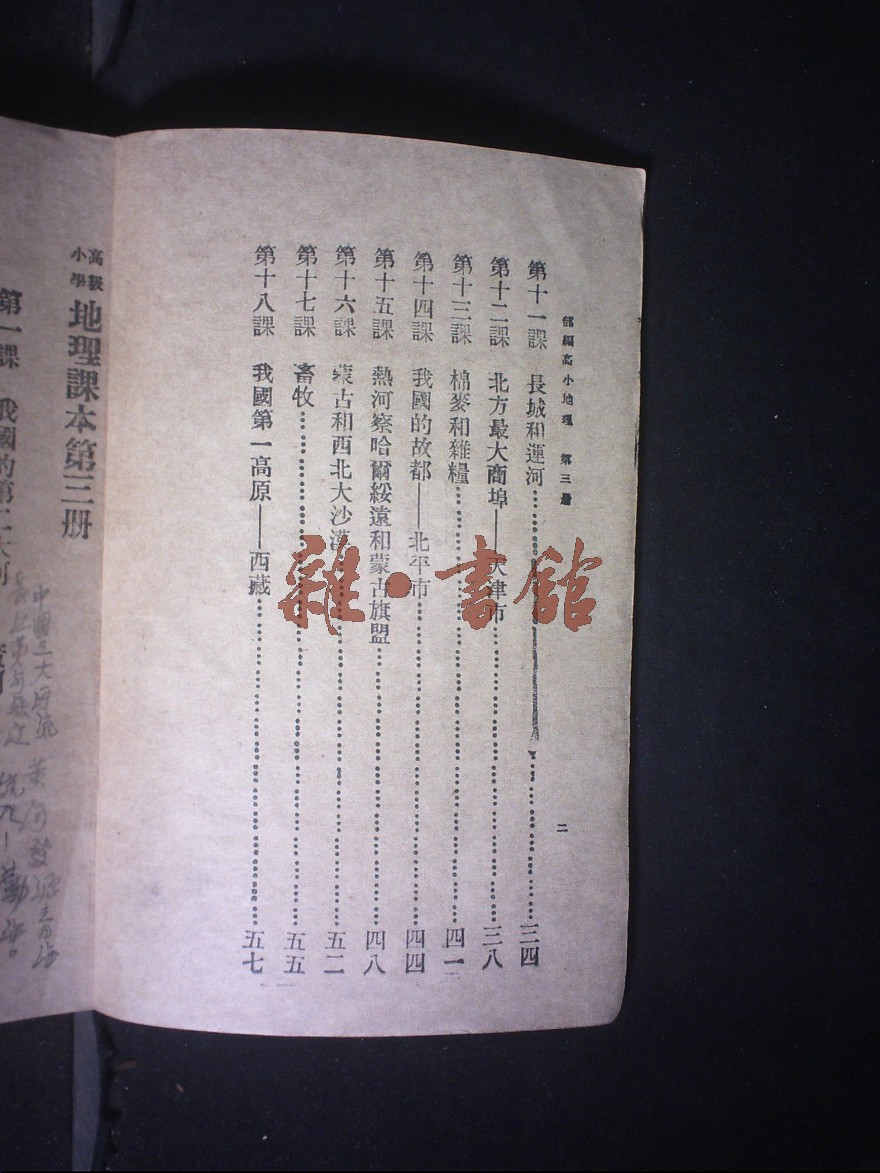 部編高小地理 第三册
第十一課 長城和運河……三四
第十二課 北方最大商埠——天津市……三八
第十三課 棉麥和雜糧……四一
第十四課 我國的故都——北平市……四四
第十五課 熱河察哈爾綏遠和蒙古旗盟……四八
第十六課 蒙古和西北大沙漠……五二
第十七課 畜牧……五五
第十八課 我國第一高原——西藏……五七
二
雜·書館
高級小學 地理課本第三册
中國三大河流 黄河發源青海
第一課 我國的第二大河